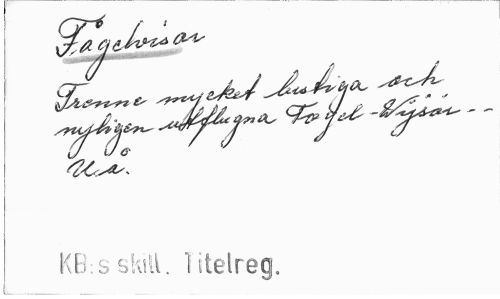 Fågelvisor
Trenne mycket lustiga och
nyligen utflugna Fogel-Wijsor --
U.å.
KB:s skill. Titelreg.